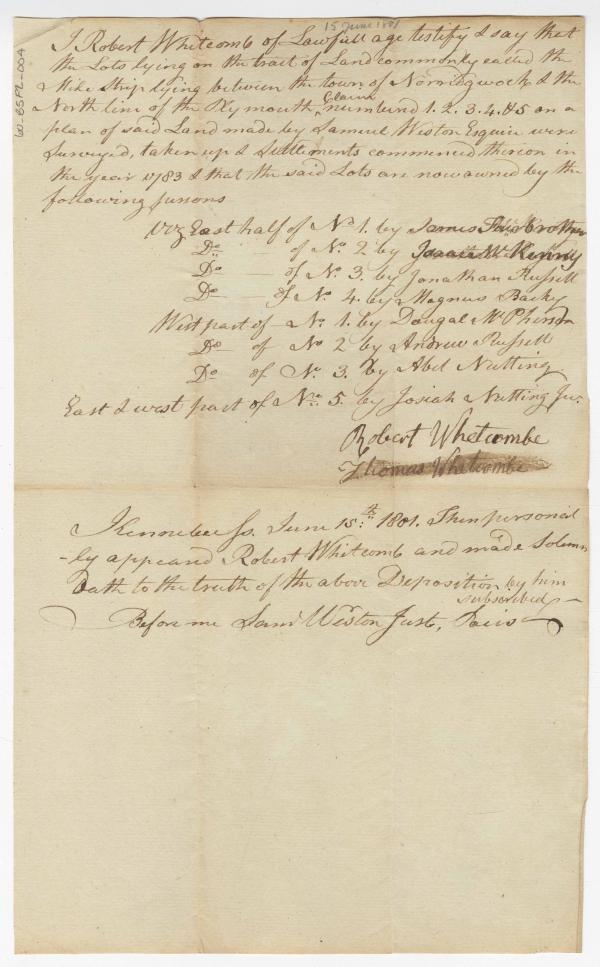 15 June 1801
60-BSPL-004
I Robert Whitcomb of Lawfull age testify & say that
the Lots lying on the tract of Land commonly called the
Mile Strip lying between the town of Norridgwock & the
North line of the Plymouth Claim numberd 1. 2. 3. 4. & 5 on a
plan of said Land made by Samuel Weston Esquire were
Surveyed, taken up & Settlements commenced thereon in
the year 1783 & that the said Lots are now owned by the
following persons
Viz East half of No 1. by James Fairbrother
Do — of No. 2 by Kenny
Do — of No 3. by Jonathan Russell
Do — of No. 4. by Magnus Backy
West part of — No 1. by Dougal McPherson
Do — of No 2 by Andrew Russell
Do of No. 3. by Abel Nutting
East & west part of No. 5. by Josiah Nutting Jur.
Robert Whetcombe
Thomas Whetcombe
Kennebec Ss. June 15th 1801. Then personal
-ly appeard Robert Whitcomb and made Solemn
Oath to the truth of the above Deposition by him
subscribed —
Before me Saml Weston Just, Pacis